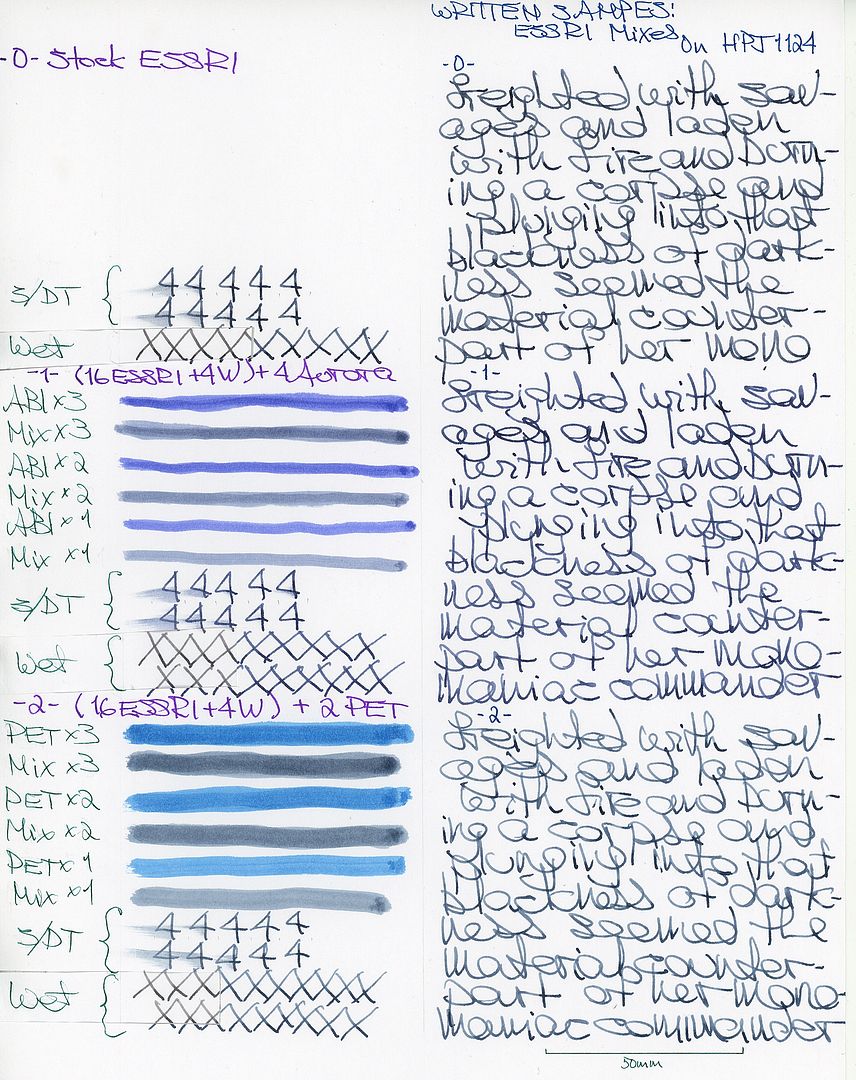 WRITTEN SAMPES:
ESSRI Mixes On HPJ1124
-0- Stock ESSRI
S/DT { 4 4 4 4 4
4 4 4 4 4
Wet XXXXXXXXXX
-1- (16ESSRI+4W)+4Aurora
ABl x3
Mix x3
ABl x2
Mix x2
ABl x1
Mix x1
S/DT { 4 4 4 4 4
4 4 4 4 4
Wet { XXXXXXXXXX
XXXXXXXXXX
-2- (16ESSRI+4W) + 2 PET
PET x3
Mix x3
PET x2
Mix x2
PET x1
Mix x1
S/DT { 4 4 4 4 4
4 4 4 4 4
Wet { XXXXXXXXXX
XXXXXXXXXX
-0-
freighted with sav-
ages and laden
with fire and burn-
ing a corpse and
plunging into that
blackness of dark-
ness seemed the
material counter-
part of her mono
-1-
freighted with sav-
ages and laden
with fire and burn-
ing a corpse and
plunging into that
blackness of dark-
ness seemed the
material counter-
part of her mono-
maniac commander
-2-
freighted with sav-
ages and laden
with fire and burn-
ing a corpse and
plunging into that
blackness of dark-
ness seemed the
material counter-
part of her mono-
maniac commander
50mm